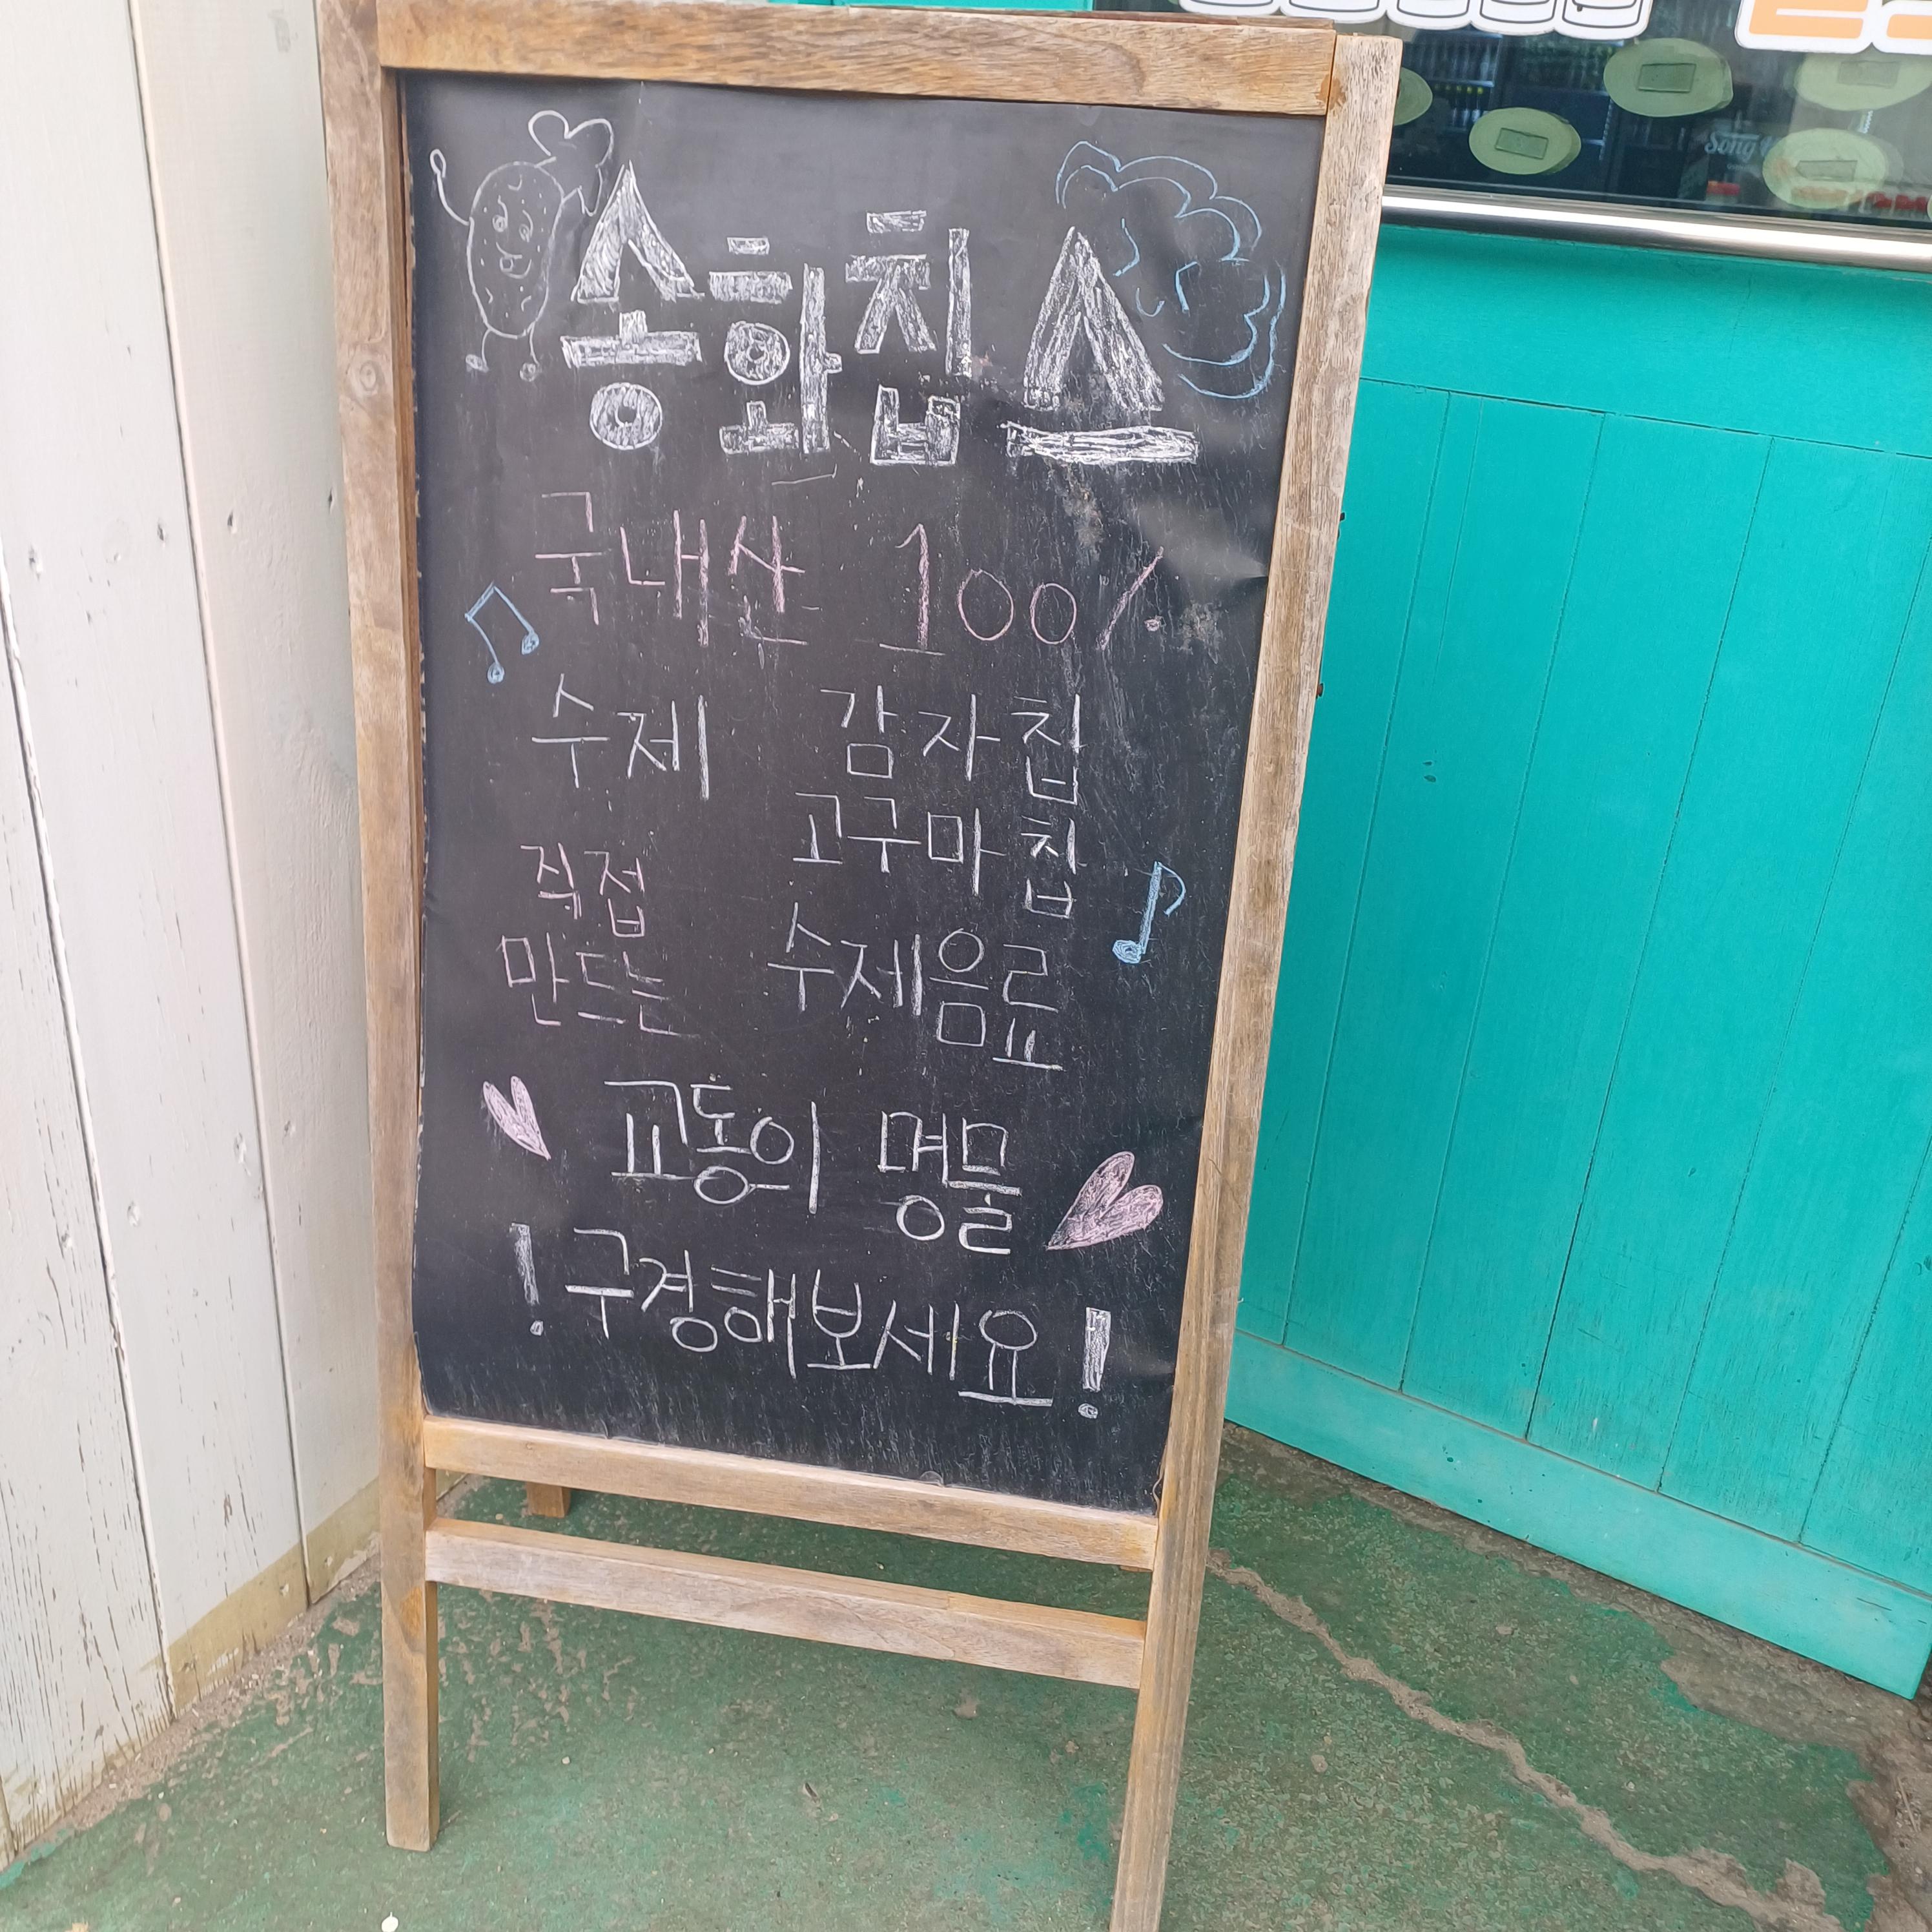 송화칩스
국내산 100%
수제 감자칩
고구마칩
직접
만드는 수제음료
교동의 명물
! 구경해보세요 !
Song